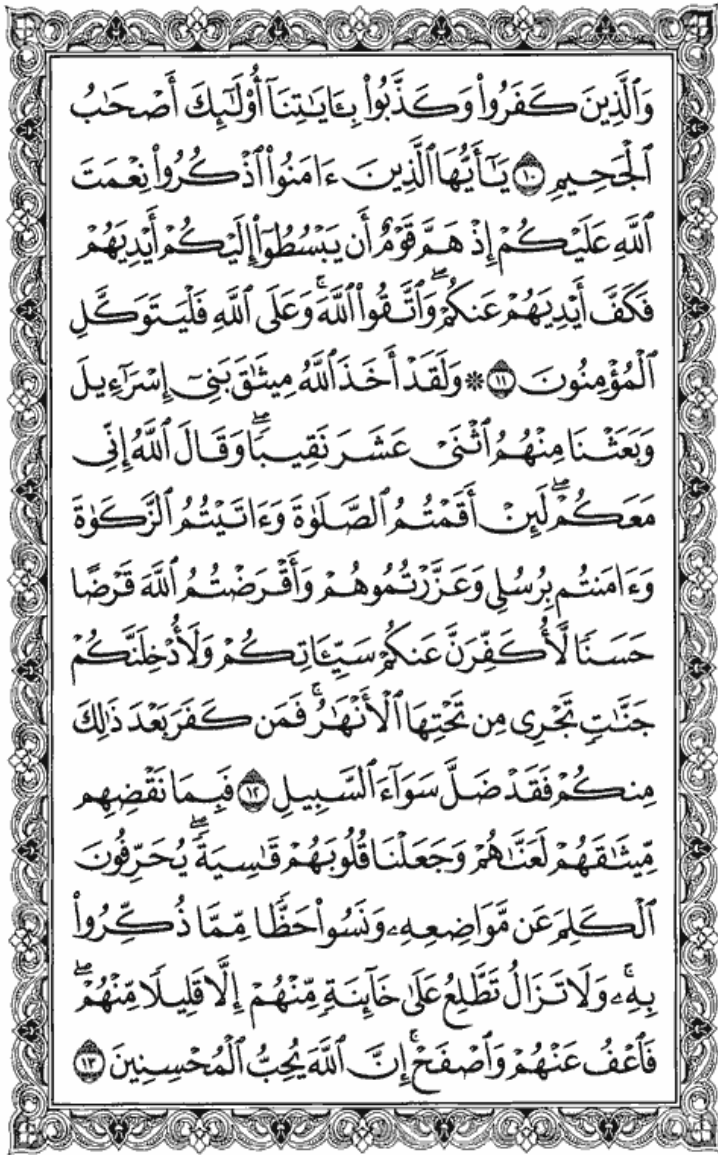 وَٱلَّذِينَ كَفَرُوا۟ وَكَذَّبُوا۟ بِـَٔايَـٰتِنَآ أُو۟لَـٰٓئِكَ أَصْحَـٰبُ
ٱلْجَحِيمِ ١٠ يَـٰٓأَيُّهَا ٱلَّذِينَ ءَامَنُوا۟ ٱذْكُرُوا۟ نِعْمَتَ
ٱللَّهِ عَلَيْكُمْ إِذْ هَمَّ قَوْمٌ أَن يَبْسُطُوٓا۟ إِلَيْكُمْ أَيْدِيَهُمْ
فَكَفَّ أَيْدِيَهُمْ عَنكُمْ ۖ وَٱتَّقُوا۟ ٱللَّهَ ۚ وَعَلَى ٱللَّهِ فَلْيَتَوَكَّلِ
ٱلْمُؤْمِنُونَ ١١ ۞ وَلَقَدْ أَخَذَ ٱللَّهُ مِيثَـٰقَ بَنِىٓ إِسْرَٰٓءِيلَ
وَبَعَثْنَا مِنْهُمُ ٱثْنَىْ عَشَرَ نَقِيبًا ۖ وَقَالَ ٱللَّهُ إِنِّى
مَعَكُمْ ۖ لَئِنْ أَقَمْتُمُ ٱلصَّلَوٰةَ وَءَاتَيْتُمُ ٱلزَّكَوٰةَ
وَءَامَنتُم بِرُسُلِى وَعَزَّرْتُمُوهُمْ وَأَقْرَضْتُمُ ٱللَّهَ قَرْضًا
حَسَنًا لَّأُكَفِّرَنَّ عَنكُمْ سَيِّـَٔاتِكُمْ وَلَأُدْخِلَنَّكُمْ
جَنَّـٰتٍ تَجْرِى مِن تَحْتِهَا ٱلْأَنْهَـٰرُ ۚ فَمَن كَفَرَ بَعْدَ ذَٰلِكَ
مِنكُمْ فَقَدْ ضَلَّ سَوَآءَ ٱلسَّبِيلِ ١٢ فَبِمَا نَقْضِهِم
مِّيثَـٰقَهُمْ لَعَنَّـٰهُمْ وَجَعَلْنَا قُلُوبَهُمْ قَـٰسِيَةً ۖ يُحَرِّفُونَ
ٱلْكَلِمَ عَن مَّوَاضِعِهِۦ وَنَسُوا۟ حَظًّا مِّمَّا ذُكِّرُوا۟
بِهِۦ ۚ وَلَا تَزَالُ تَطَّلِعُ عَلَىٰ خَآئِنَةٍ مِّنْهُمْ إِلَّا قَلِيلًا مِّنْهُمْ ۖ
فَٱعْفُ عَنْهُمْ وَٱصْفَحْ ۚ إِنَّ ٱللَّهَ يُحِبُّ ٱلْمُحْسِنِينَ ١٣